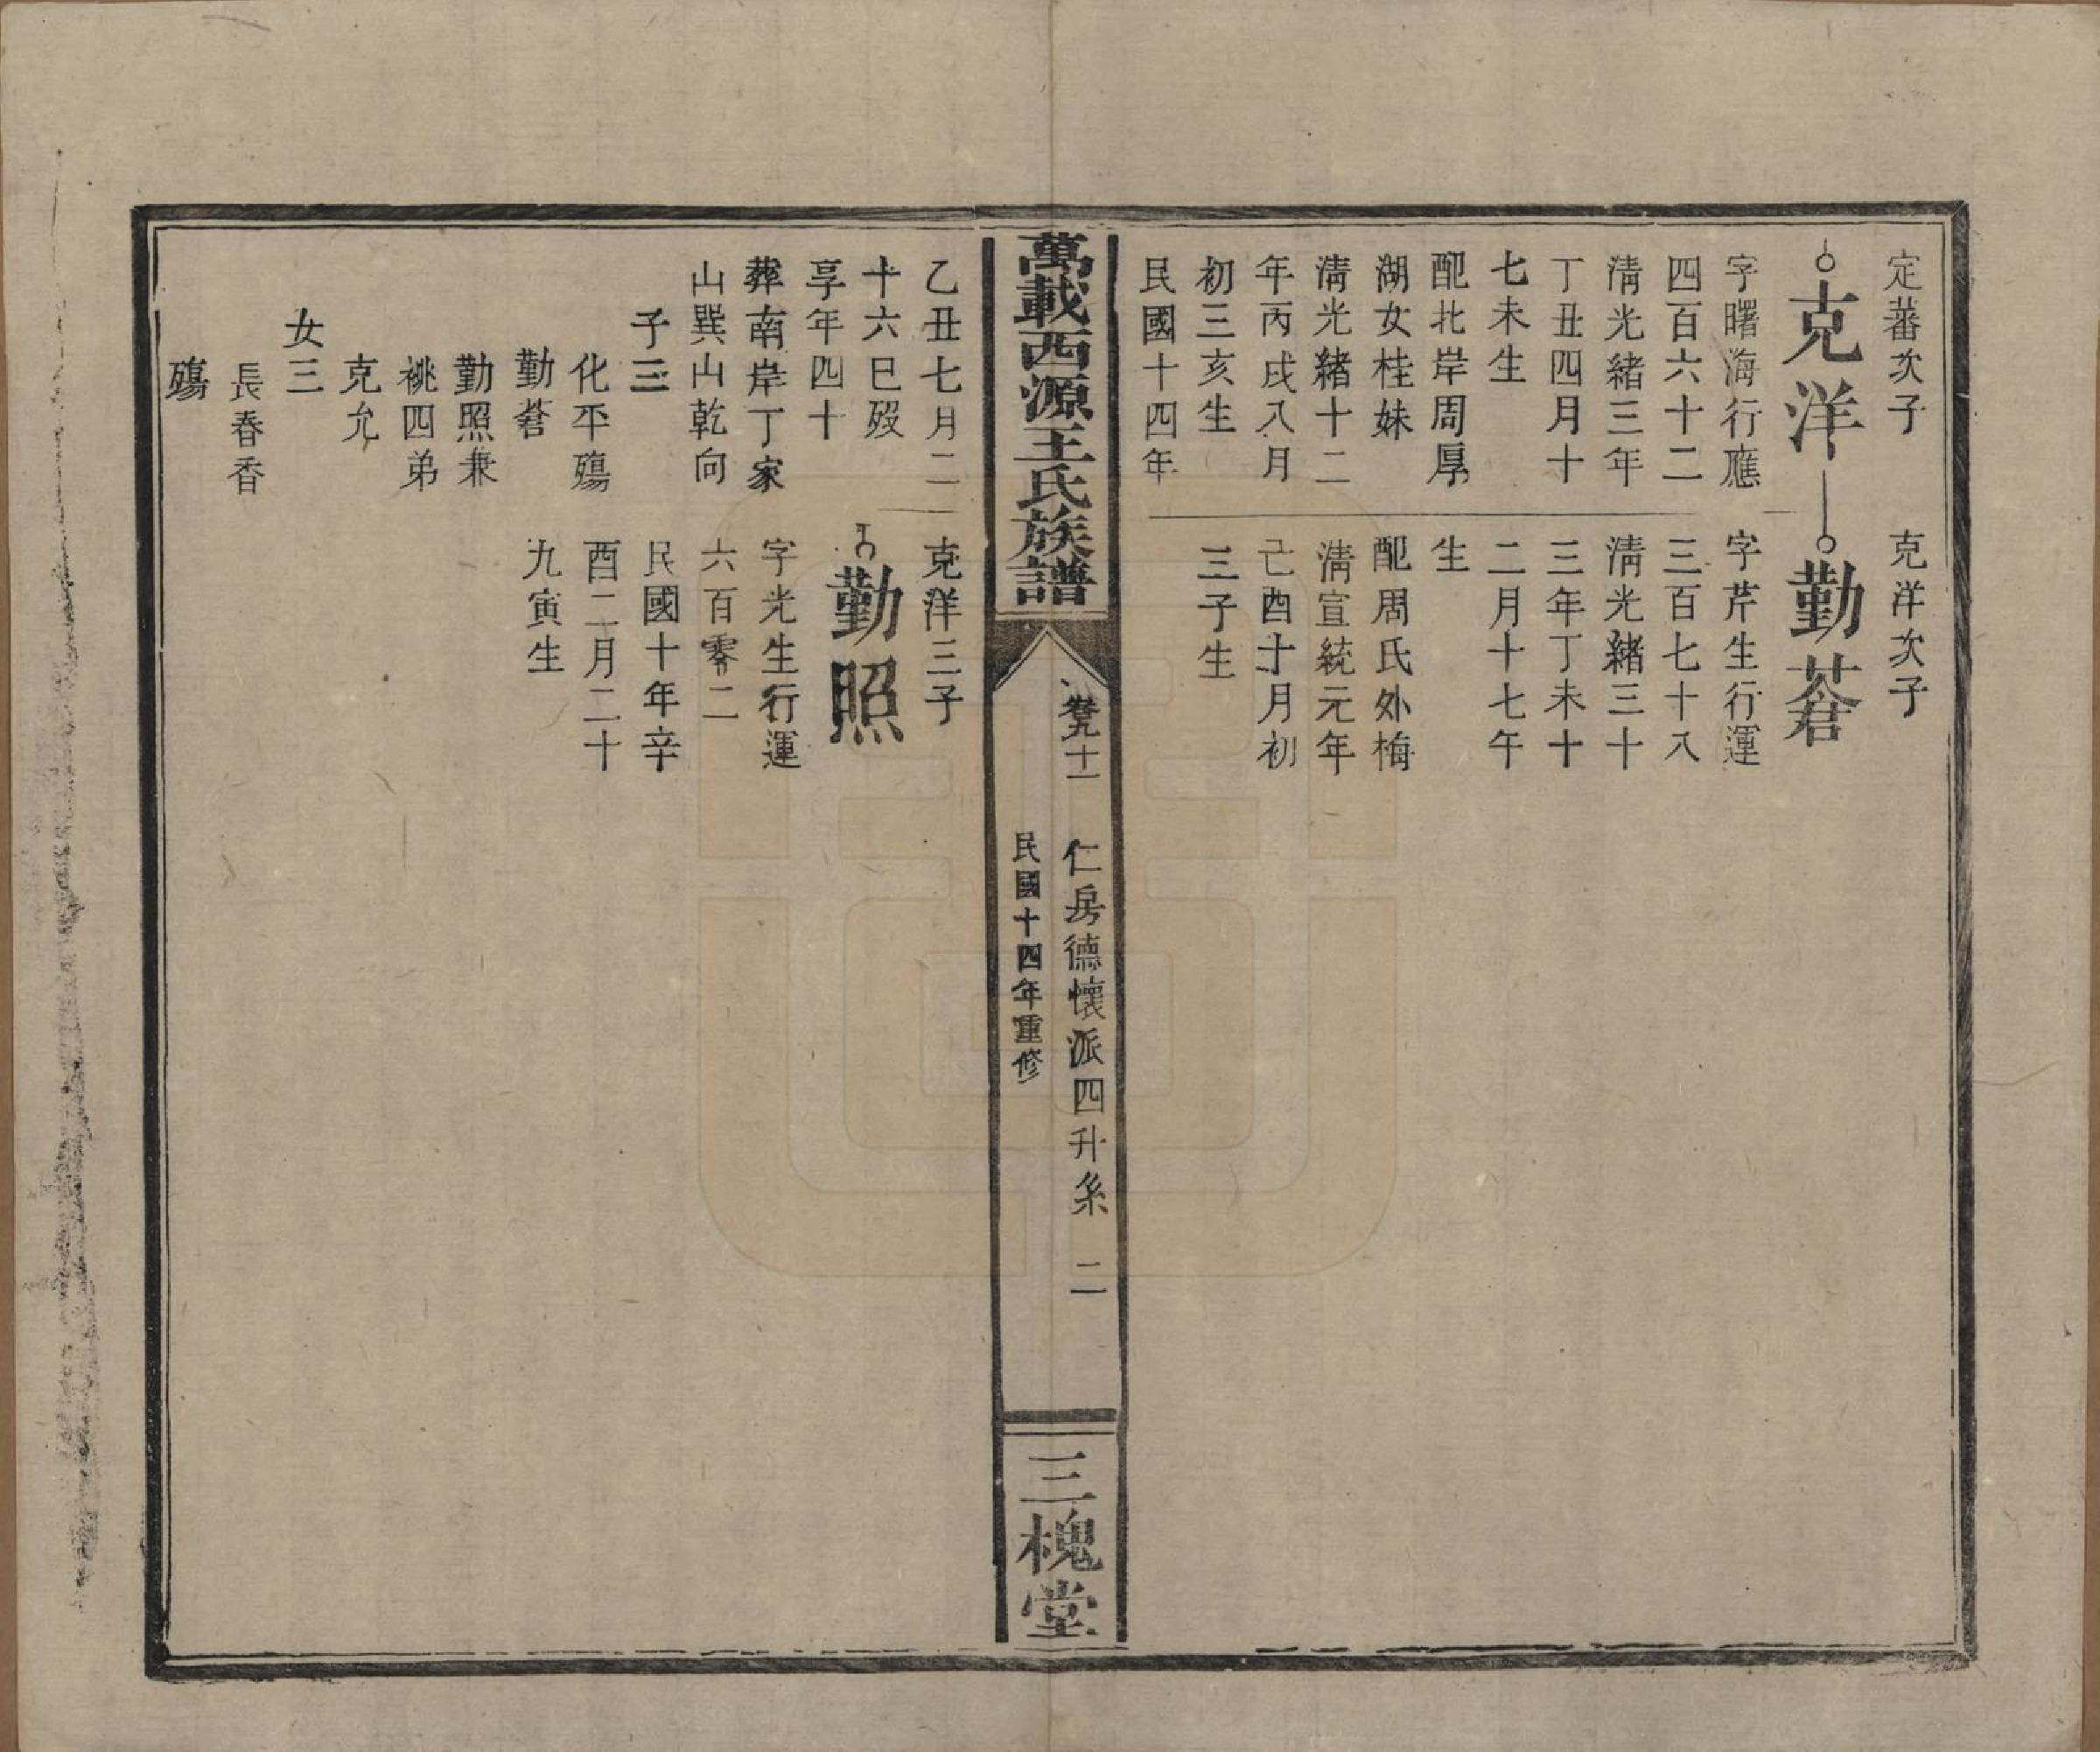 定蕃次子
克洋
字曙海行應
四百六十二
清光緒三年
丁丑四月十
七未生
配北岸周厚
湖女桂妹
清光緒十二
年丙戌八月
初三亥生
民國十四年
克洋次子
勤蒼
字芹生行運
三百七十八
清光緒三十
三年丁未十
二月十七午
生
配周氏外梅
清宣統元年
己酉十月初
三子生
萬載西源王氏族譜
卷九十一
仁房德懷派四升系 二
民國十四年重修
三槐堂
乙丑七月二
十六巳歿
享年四十
葬南岸丁家
山巽山乾向
子三
化平殤
勤蒼
勤照兼
祧四弟
克允
女三
長春香
殤
克洋三子
勤照
字光生行運
六百零二
民國十年辛
酉二月二十
九寅生